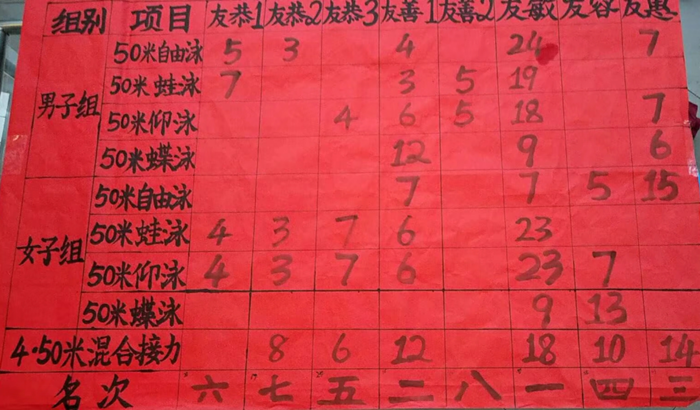 组别 项目 友恭1 友恭2 友恭3 友善1 友善2 友敏 友容 友惠
男子组 50米自由泳 5 3 4 24 7
50米蛙泳 7 3 5 19
50米仰泳 4 6 5 18 7
50米蝶泳 12 9 6
女子组 50米自由泳 7 7 5 15
50米蛙泳 4 3 7 6 23
50米仰泳 4 3 7 6 23 7
50米蝶泳 9 13
4·50米混合接力 8 6 12 18 10 14
名次 六 七 五 二 八 一 四 三